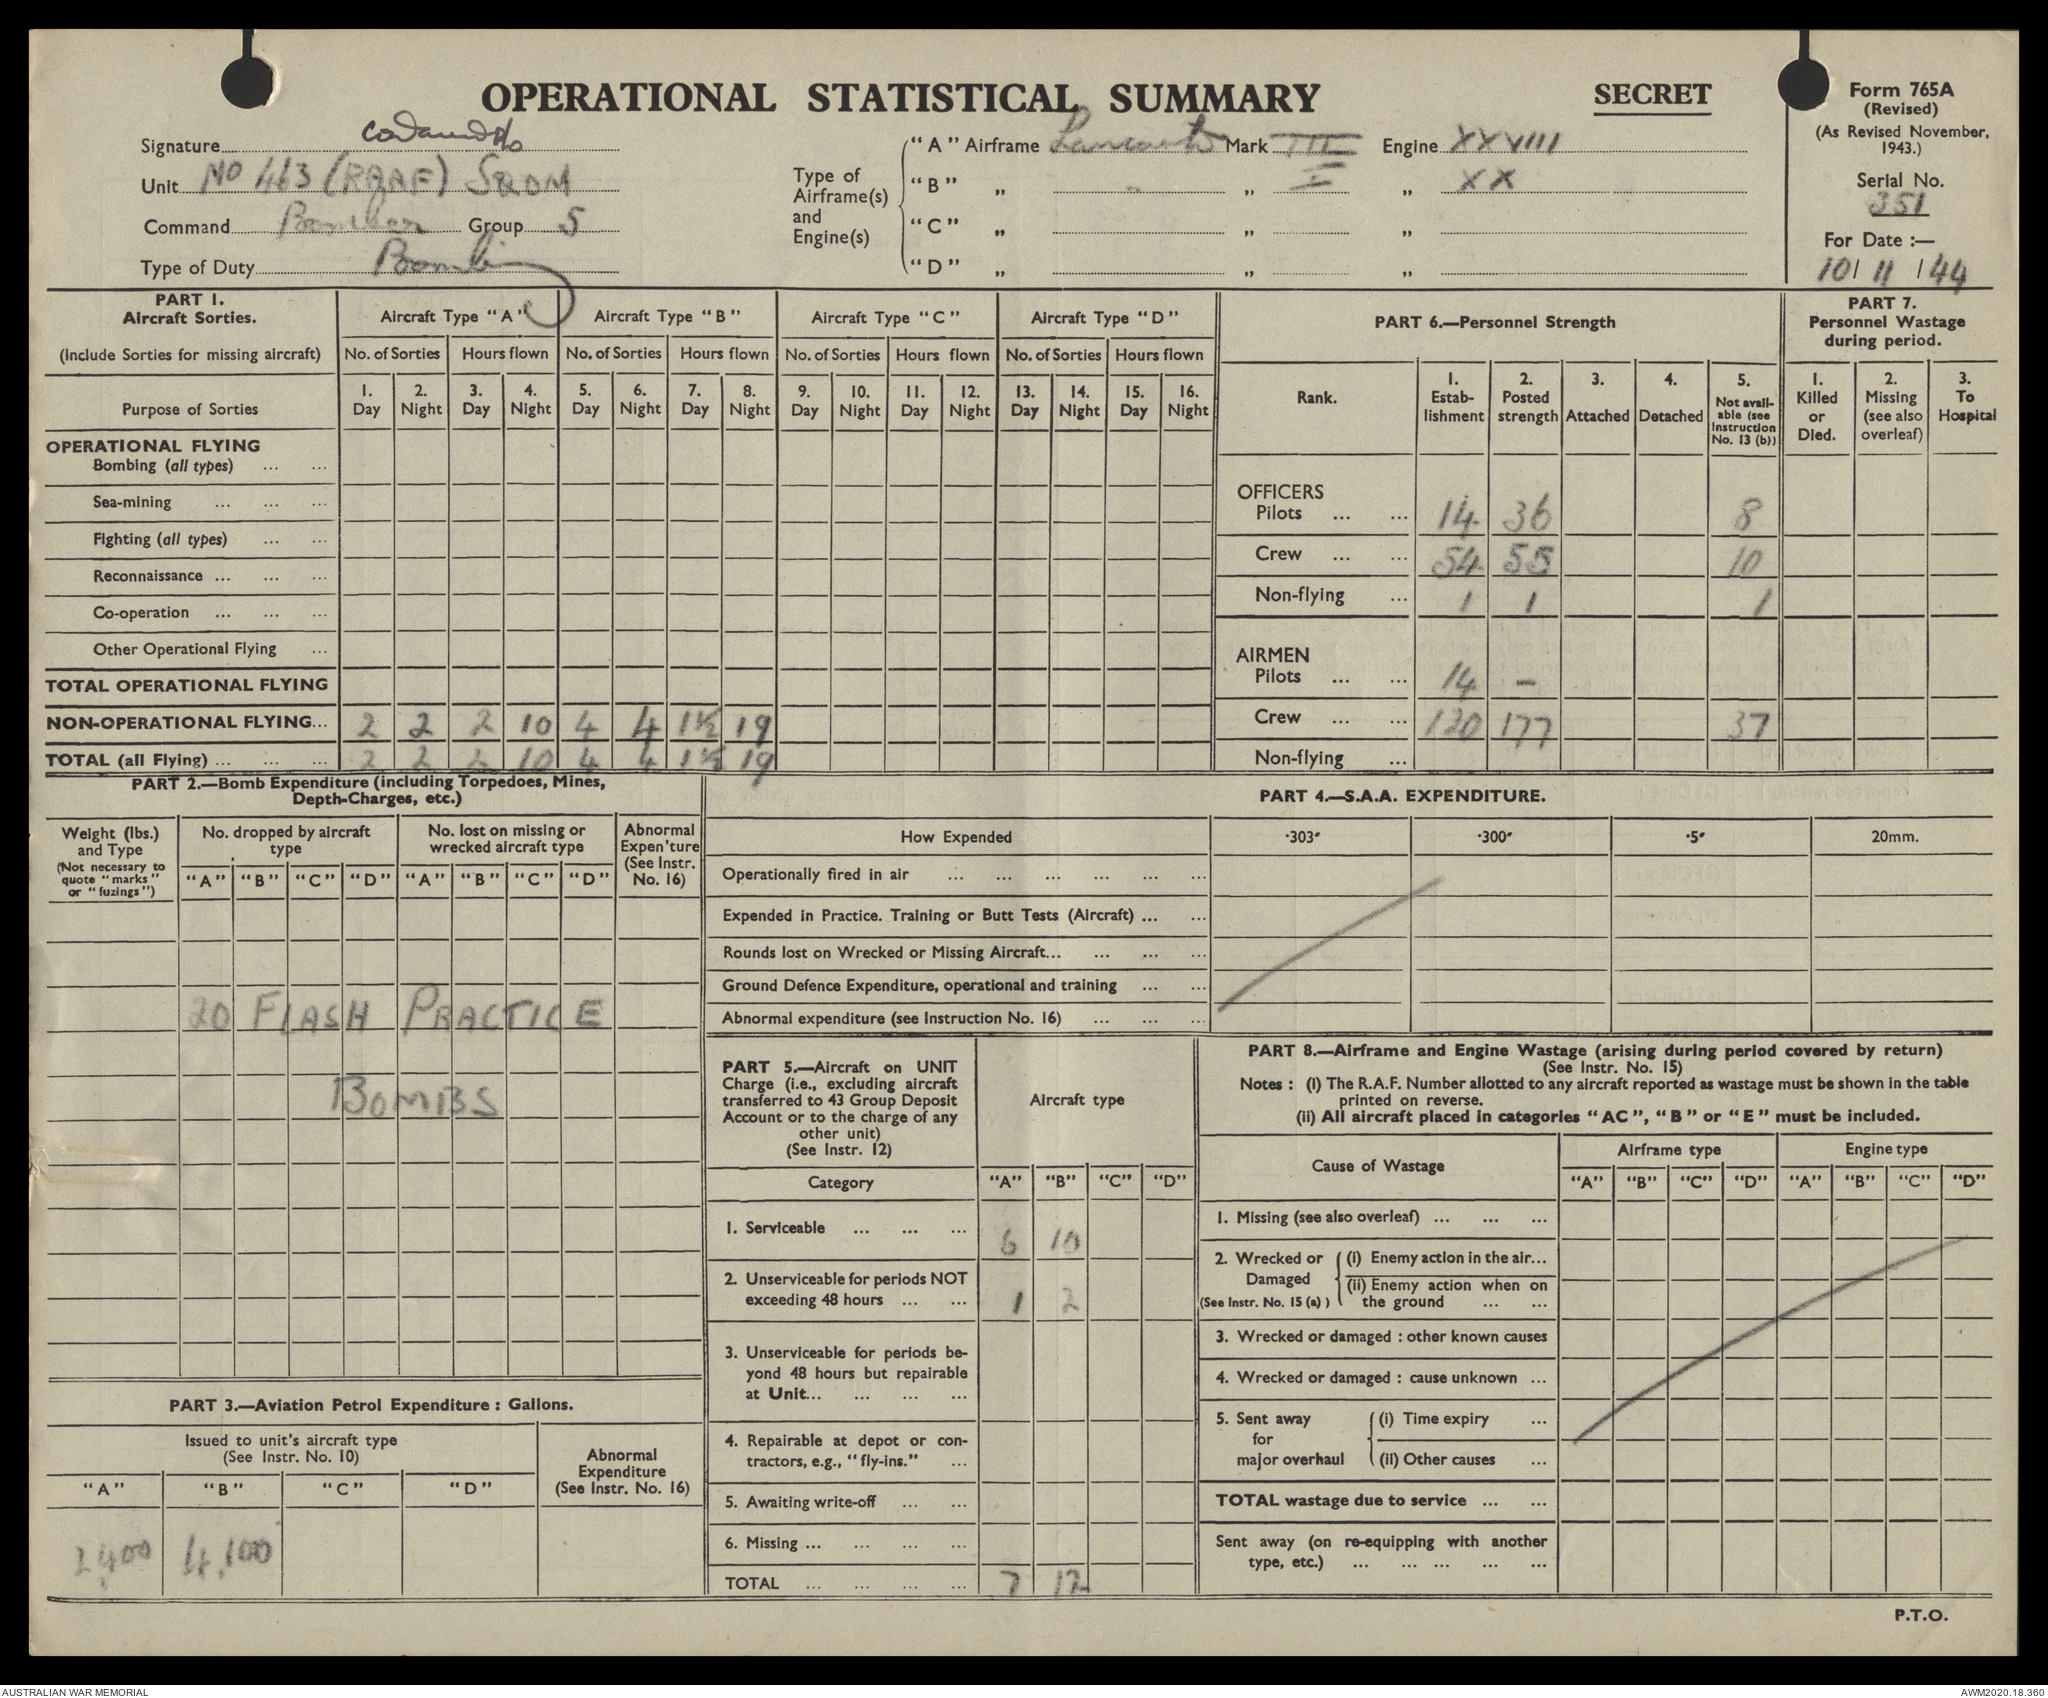 OPERATIONAL STATISTICAL SUMMARY
SECRET
Form 765A
(Revised)
(As Revised November, 1943.)
Serial No.
351
For Date :—
10 / 11 / 44
Signature
Unit No 463 (RAAF) SQDN
Command Bomber Group 5
Type of Duty Bombing
Type of Airframe(s) and Engine(s)
"A" Airframe Lancaster Mark III Engine XXVIII
"B" „ „ I „ XX
"C" „ „ „
"D" „ „ „
PART 1.
Aircraft Sorties.
(Include Sorties for missing aircraft)
Aircraft Type "A" Aircraft Type "B" Aircraft Type "C" Aircraft Type "D"
No. of Sorties Hours flown No. of Sorties Hours flown No. of Sorties Hours flown No. of Sorties Hours flown
Purpose of Sorties
1. Day 2. Night 3. Day 4. Night 5. Day 6. Night 7. Day 8. Night 9. Day 10. Night 11. Day 12. Night 13. Day 14. Night 15. Day 16. Night
OPERATIONAL FLYING
Bombing (all types) ... ...
Sea-mining ... ... ...
Fighting (all types) ... ...
Reconnaissance ... ... ...
Co-operation ... ... ...
Other Operational Flying ...
TOTAL OPERATIONAL FLYING
NON-OPERATIONAL FLYING... 2 2 2 10 4 4 1½ 19
TOTAL (all Flying) ... ... ... 2 2 2 10 4 4 1½ 19
PART 6.—Personnel Strength
Rank.
1. Establishment
2. Posted strength
3. Attached
4. Detached
5. Not available (see Instruction No. 13 (b))
OFFICERS
Pilots ... ... 14 36 8
Crew ... ... 54 55 10
Non-flying ... 1 1 1
AIRMEN
Pilots ... ... 14 –
Crew ... ... 120 177 37
Non-flying ...
PART 7.
Personnel Wastage during period.
1. Killed or Died.
2. Missing (see also overleaf)
3. To Hospital
PART 2.—Bomb Expenditure (including Torpedoes, Mines,
Depth-Charges, etc.)
Weight (lbs.) and Type
(Not necessary to quote "marks" or "fuzings")
No. dropped by aircraft type
No. lost on missing or wrecked aircraft type
Abnormal Expen'ture (See Instr. No. 16)
"A" "B" "C" "D" "A" "B" "C" "D"
20 FLASH PRACTICE
BOMBS
PART 3.—Aviation Petrol Expenditure : Gallons.
Issued to unit's aircraft type
(See Instr. No. 10)
Abnormal Expenditure (See Instr. No. 16)
"A" "B" "C" "D"
2,400 4,100
PART 4.—S.A.A. EXPENDITURE.
How Expended ·303" ·300" ·5" 20mm.
Operationally fired in air ... ... ... ... ... ...
Expended in Practice. Training or Butt Tests (Aircraft) ... ...
Rounds lost on Wrecked or Missing Aircraft... ... ... ...
Ground Defence Expenditure, operational and training ... ...
Abnormal expenditure (see Instruction No. 16) ... ... ...
PART 5.—Aircraft on UNIT
Charge (i.e., excluding aircraft
transferred to 43 Group Deposit
Account or to the charge of any
other unit)
(See Instr. 12)
Aircraft type
Category "A" "B" "C" "D"
1. Serviceable ... ... ... 6 10
2. Unserviceable for periods NOT
exceeding 48 hours ... ... 1 2
3. Unserviceable for periods be-
yond 48 hours but repairable
at Unit... ... ... ...
4. Repairable at depot or con-
tractors, e.g., "fly-ins." ...
5. Awaiting write-off ... ...
6. Missing ... ... ... ...
TOTAL ... ... ... ... 7 12
PART 8.—Airframe and Engine Wastage (arising during period covered by return)
(See Instr. No. 15)
Notes : (i) The R.A.F. Number allotted to any aircraft reported as wastage must be shown in the table
printed on reverse.
(ii) All aircraft placed in categories "AC", "B" or "E" must be included.
Cause of Wastage
Airframe type Engine type
"A" "B" "C" "D" "A" "B" "C" "D"
1. Missing (see also overleaf) ... ... ...
2. Wrecked or Damaged (See Instr. No. 15 (a) )
(i) Enemy action in the air...
(ii) Enemy action when on
the ground ... ...
3. Wrecked or damaged : other known causes
4. Wrecked or damaged : cause unknown ...
5. Sent away for major overhaul
(i) Time expiry ...
(ii) Other causes ...
TOTAL wastage due to service ... ...
Sent away (on re-equipping with another
type, etc.) ... ... ... ... ...
P.T.O.
AUSTRALIAN WAR MEMORIAL
AWM2020.18.360